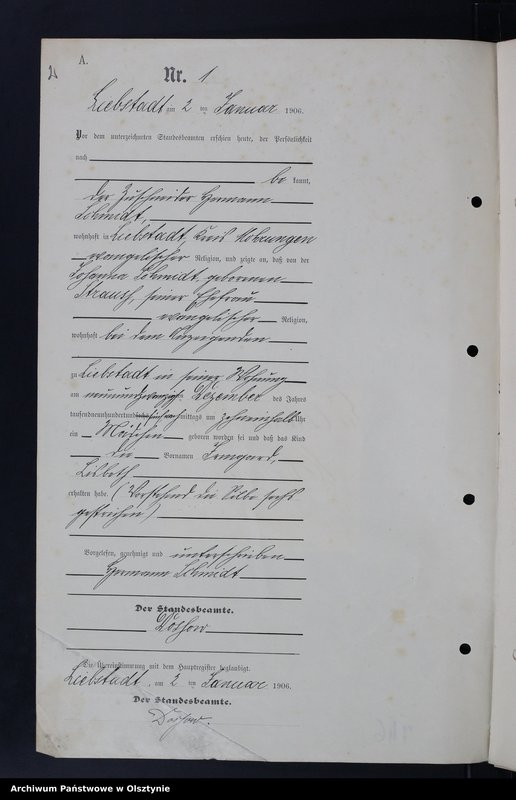 A.
Nr. 1
Liebstadt am 2 ten Januar 1906.
Vor dem unterzeichneten Standesbeamten erschien heute, der Persönlichkeit
nach
be kannt,
der Zuschneider Hermann
Schmidt,
wohnhaft in Liebstadt, Kreis Mohrungen
evangelischer Religion, und zeigte an, daß von der
Johanna Schmidt, geborenen
seiner Ehefrau
evangelischer Religion,
wohnhaft bei dem Anzeigenden
zu Liebstadt in seiner Wohnung
am neunundzwanzigsten Dezember des Jahres
tausendneunhundertund fünf mittags um zehneinhalb Uhr
ein Mädchen geboren worden sei und daß das Kind
die Vornamen Irmgard,
Lisbeth
erhalten habe. (Vorstehend die Silbe sechs
gestrichen)
Vorgelesen, genehmigt und unterschrieben
Hermann Schmidt
Der Standesbeamte.
Die Übereinstimmung mit dem Hauptregister beglaubigt.
Liebstadt, am 2 ten Januar 1906.
Der Standesbeamte.
Archiwum Państwowe w Olsztynie